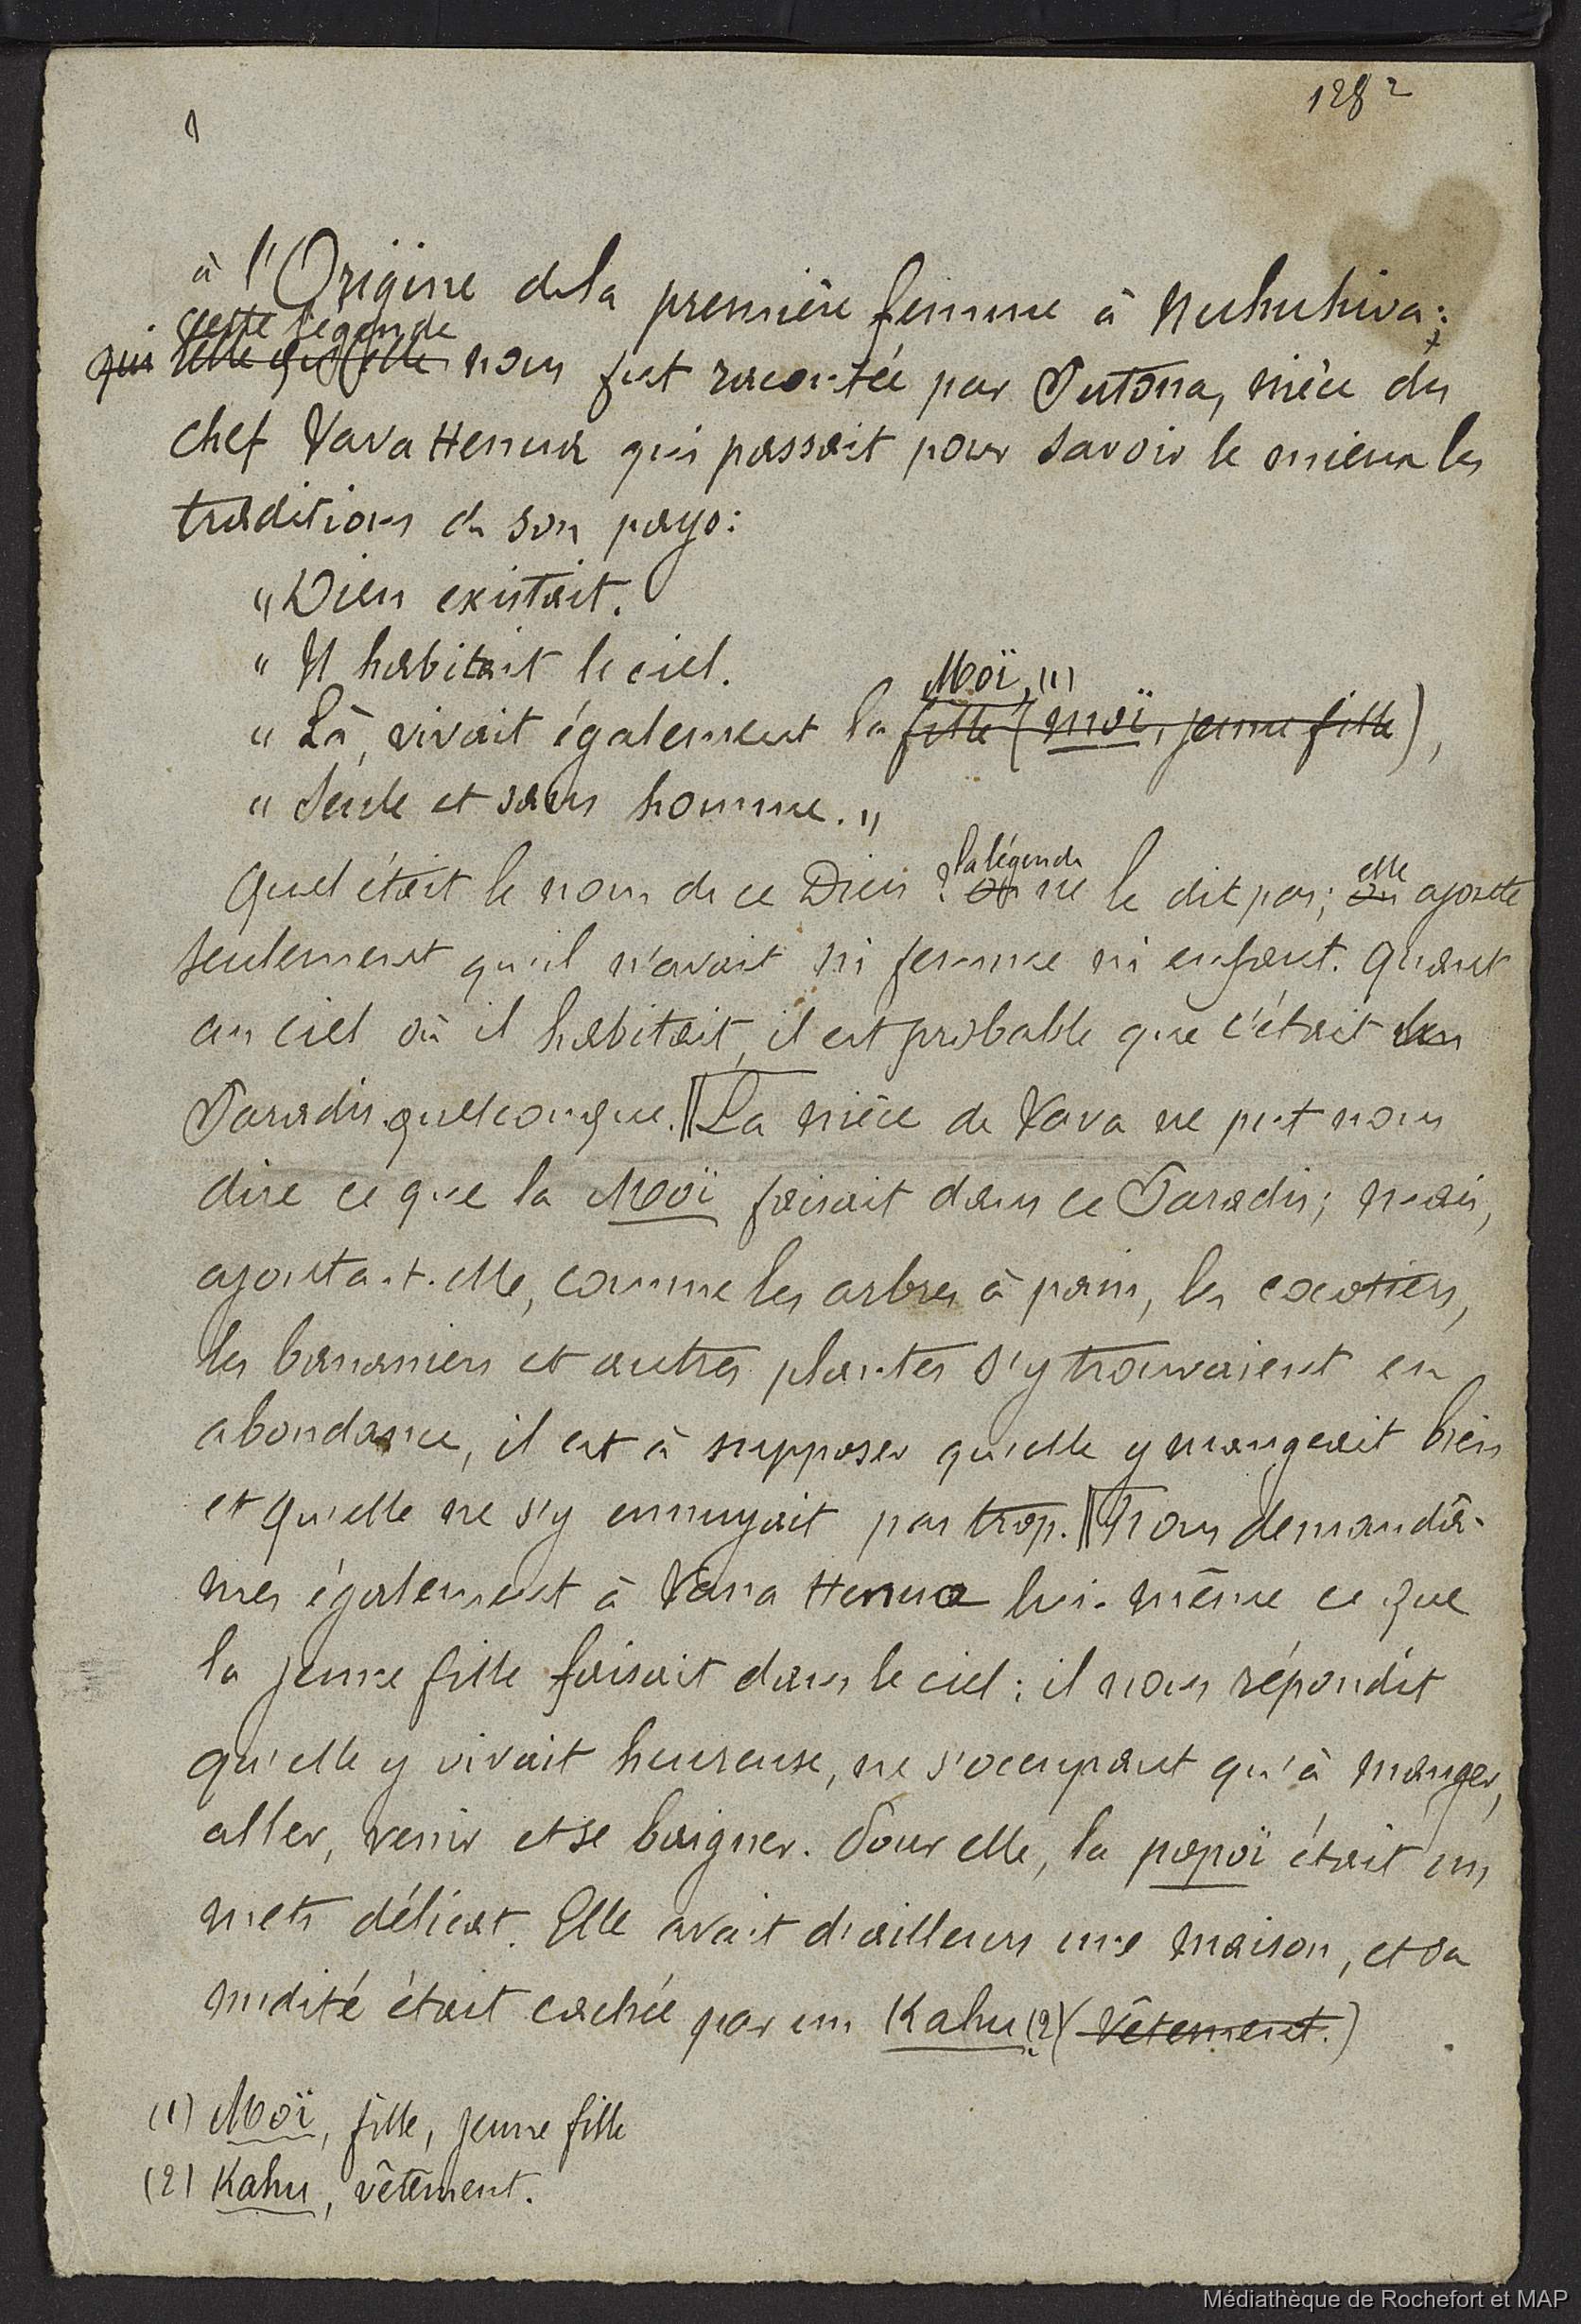 1282
1
à l'Origine de la première femme à Nuhuhiva;
cette légende
qui telle qu'elle nous fut racontée par Putona, nièce du
chef Vava Henua qui passait pour savoir le mieux les
traditions de son pays:
"Dieu existait.
" Il habitait le ciel.
Moï, (1)
" Là, vivait également la fille (moï, jeune fille),
" Seule et sans homme."
la légende elle
Quel était le nom de ce Dieu? on ne le dit pas; on ajoute
seulement qu'il n'avait ni femme ni enfant. Quant
au ciel où il habitait, il est probable que c'était un
Paradis quelconque. La nièce de Vava ne put nous
dire ce que la Moï faisait dans ce Paradis; mais,
ajouta-t-elle, comme les arbres à pain, les cocotiers,
les bananiers et autres plantes s'y trouvaient en
abondance, il est à supposer qu'elle y mangeait bien
et qu'elle ne s'y ennuyait pas trop. Nous demandâ-
mes également à Vava Henua lui-même ce que
la jeune fille faisait dans le ciel: il nous répondit
qu'elle y vivait heureuse, ne s'occupant qu'à manger,
aller, venir et se baigner. Pour elle, la popoï était un
mets délicat. Elle avait d'ailleurs une maison, et sa
nudité était cachée par un Kahu (2) (vêtement.)
(1) Moï, fille, jeune fille
(2) Kahu, vêtement.
Médiathèque de Rochefort et MAP